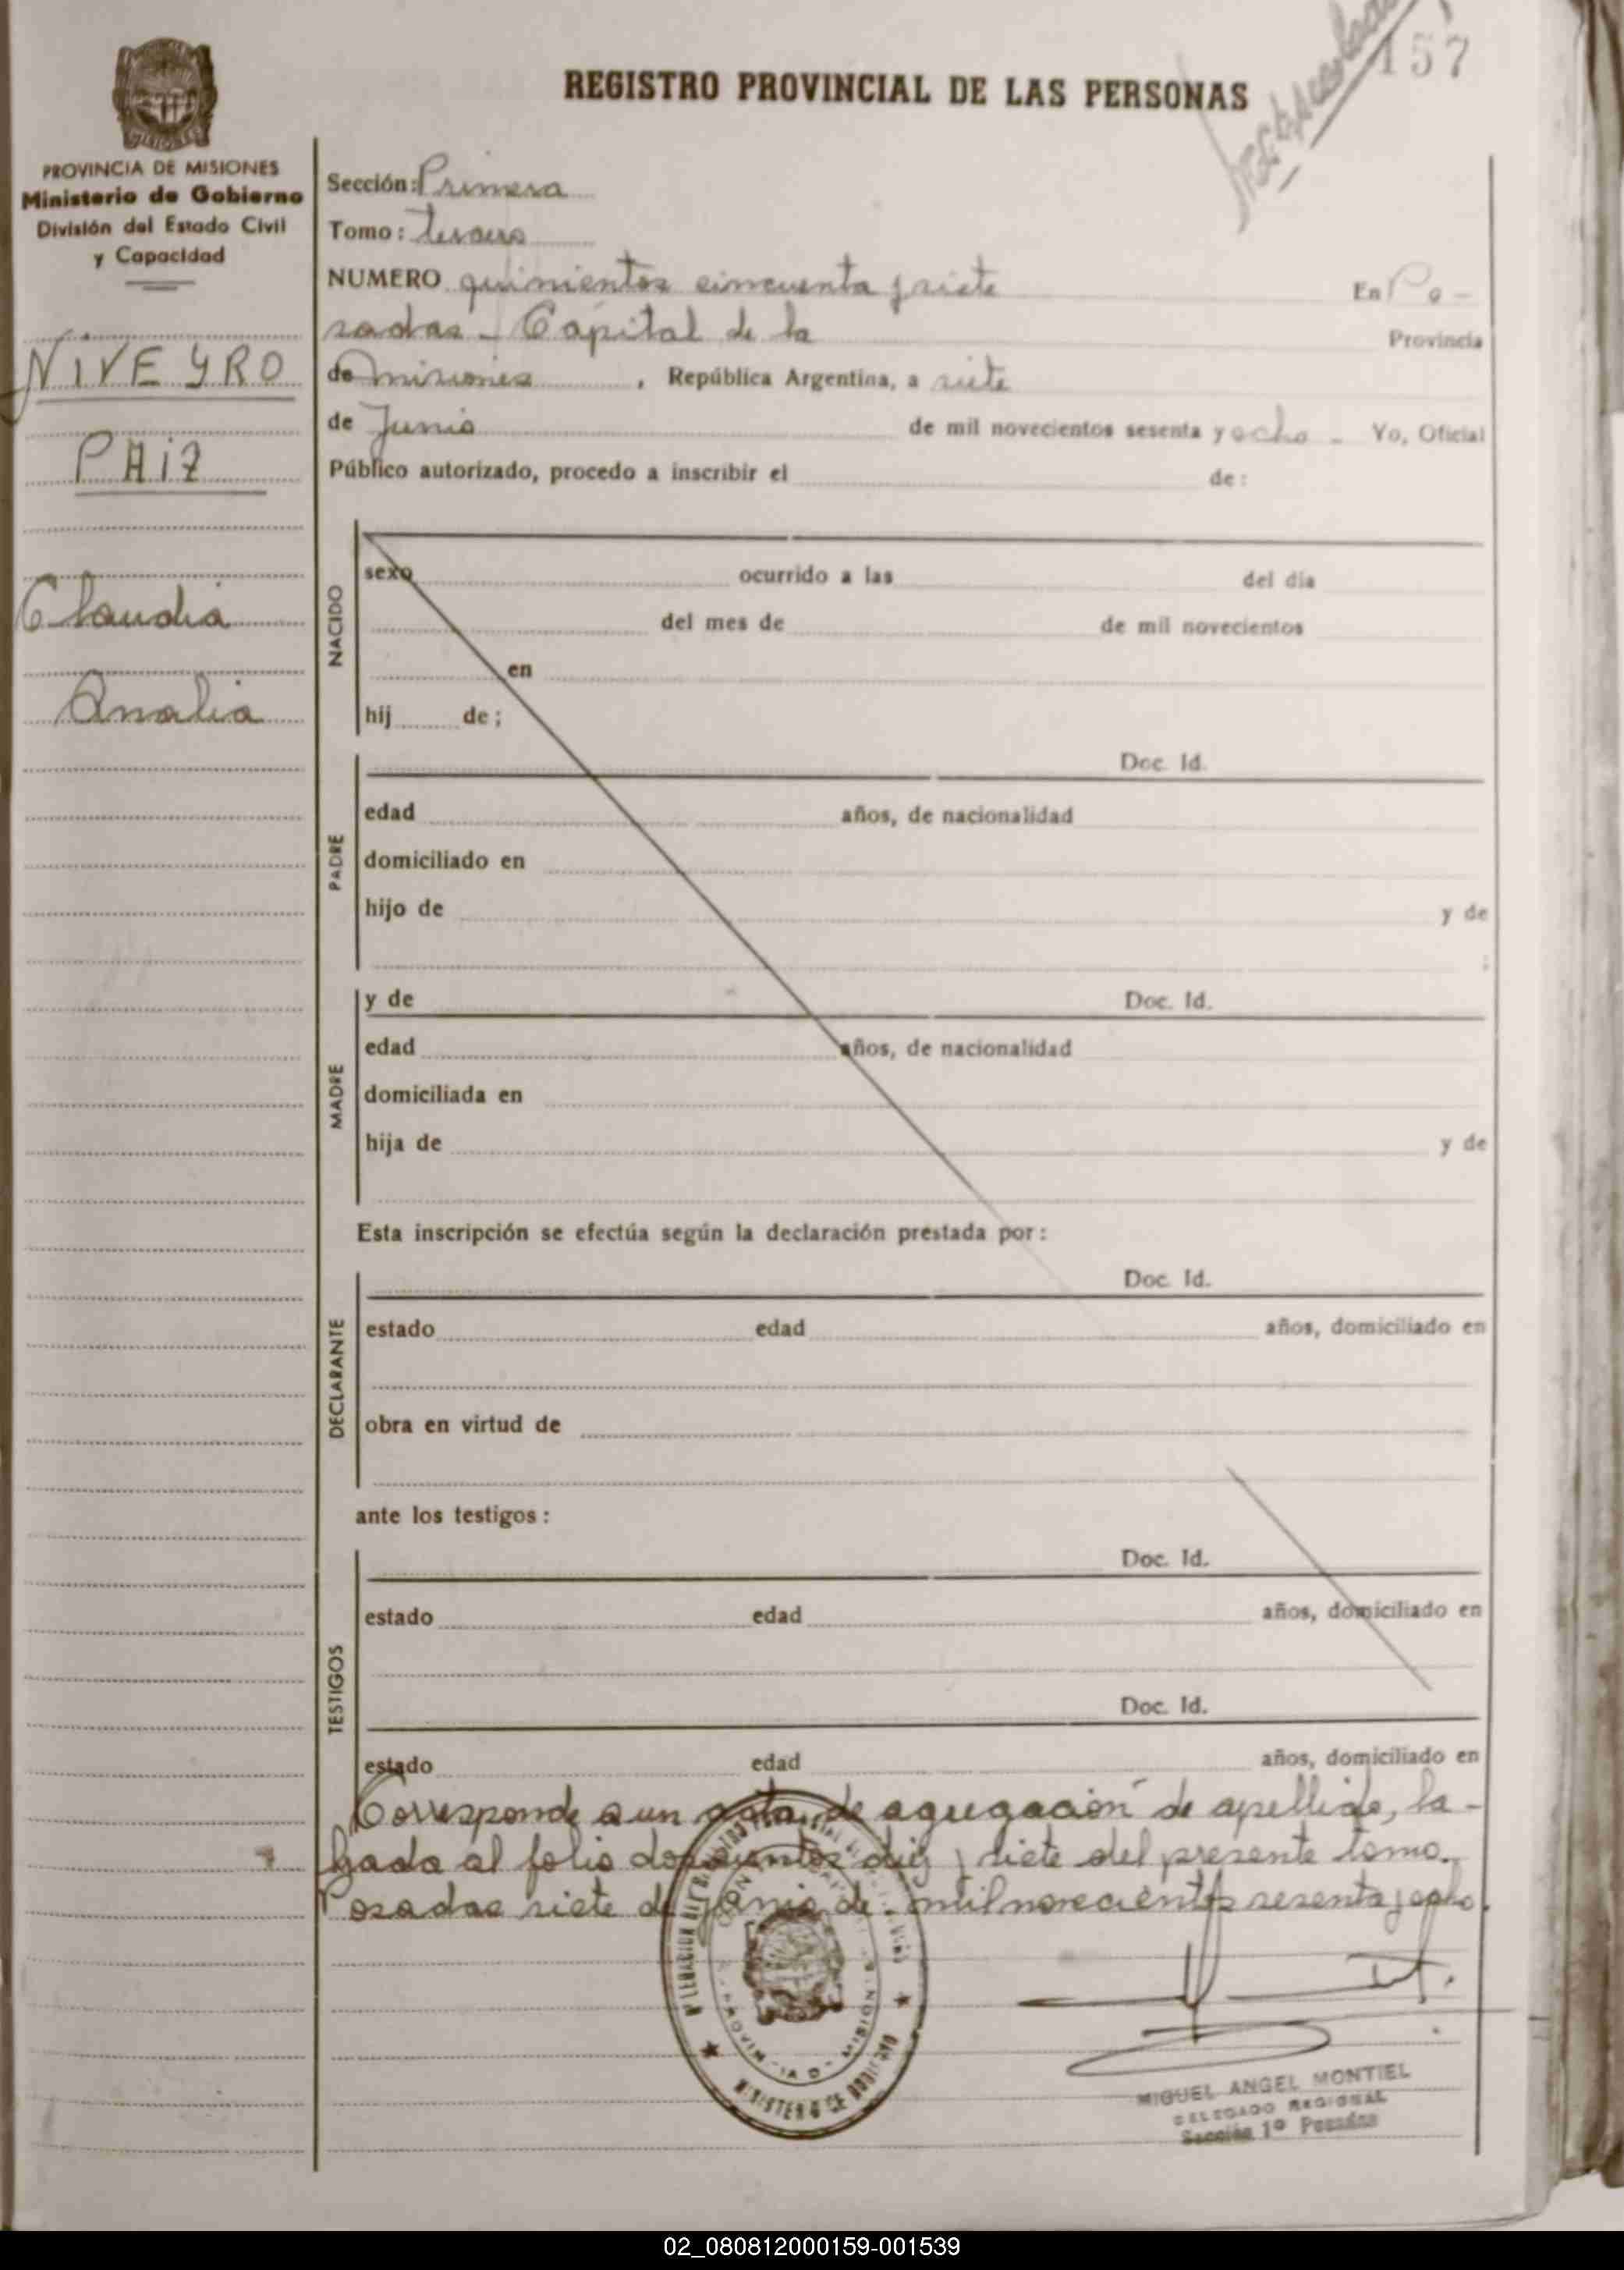 157
REGISTRO PROVINCIAL DE LAS PERSONAS
MISIONES
PROVINCIA DE MISIONES
Ministerio de Gobierno
División del Estado Civil
y Capacidad
NIVEYRO
PAIZ
Claudia
Analia
Sección: Primera
Tomo: tercero
NUMERO quinientos cincuenta y siete En Po-
sadas - Capital de la Provincia
de misiones, República Argentina, a siete
de Junio de mil novecientos sesenta y ocho - Yo, Oficial
Público autorizado, procedo a inscribir el de:
NACIDO
sexo ocurrido a las del día
del mes de de mil novecientos
en
hij de;
PADRE
Doc. Id.
edad años, de nacionalidad
domiciliado en
hijo de y de
;
MADRE
y de Doc. Id.
edad años, de nacionalidad
domiciliada en
hija de y de
Esta inscripción se efectúa según la declaración prestada por:
DECLARANTE
Doc. Id.
estado edad años, domiciliado en
obra en virtud de
ante los testigos:
TESTIGOS
Doc. Id.
estado edad años, domiciliado en
Doc. Id.
estado edad años, domiciliado en
Corresponde a un acta de agregación de apellido, la-
brada al folio doscientos diez y siete del presente tomo.
Posadas siete de junio de mil novecientos sesenta y ocho.
MINISTERIO DE GOBIERNO
MIGUEL ANGEL MONTIEL
DELEGADO REGIONAL
Sección 1º Posadas
02_080812000159-001539